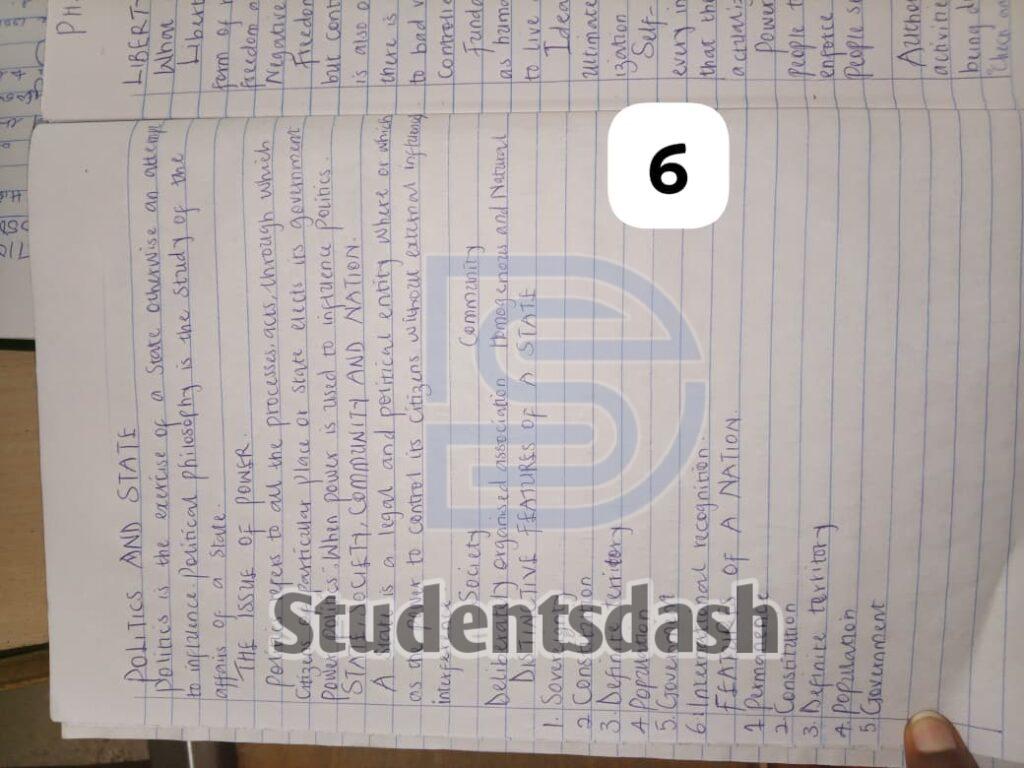 POLITICS AND STATE
Politics is the exercise of a State otherwise an attempt
to influence Political philosophy is the study of the
affairs of a state.
THE ISSUE OF POWER.
Politics refers to all the processes, acts, through which
Citizens of a Particular place or state elects its government
Power Politics: When power is used to influence Politics.
STATE, SOCIETY, COMMUNITY AND NATION.
A State is a legal and political entity where or which
as the power to control its Citizens without external influence
interference
Society Community
Deliberately organised association Homogenous and Natural
DISTINCTIVE FEATURES OF A STATE
1. Sovereignty
2. Constitution
3. Definite territory
4. Population
5. Government
6. International recognition.
FEATURES OF A NATION.
1. Permanent
2. Constitution
3. Definite territory
4. Population
5. Government
PH
LIBERT
What
Libert
form of
freedom
Negative
Freedom
but cont
is also
there is
to bad
Controlle
Funda
as human
to live
Idea
Ultimate
ization
Self-
every in
that the
actuali
Power
people to
enforce
People s
Author
activitie
being d
6
Studentsdash